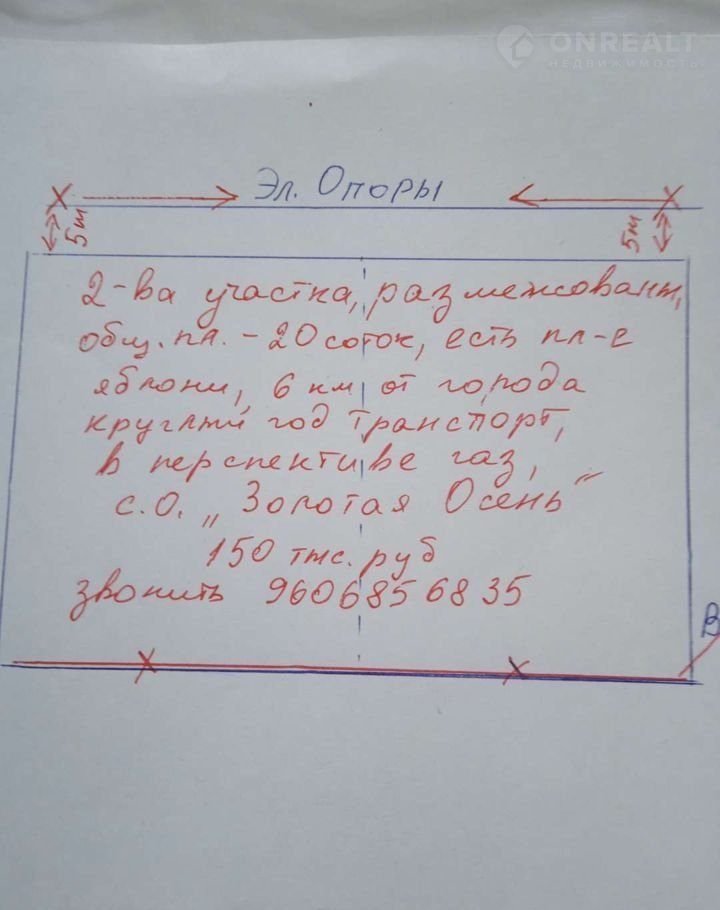 ONREALT
НЕДВИЖИМОСТЬ
Эл. Опоры
5м
5м
2-ва участка, размежованы,
общ. пл. - 20 соток, есть пл-е
яблони, 6 км от города
круглый год транспорт,
в перспективе газ,
с.о. „Золотая Осень"
150 тыс. руб
звонить 9606856835
В